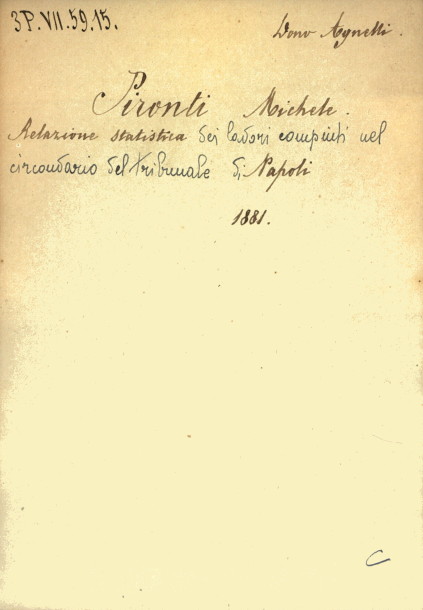 3P.VII.59.15.
Dono Agnelli.
Pironti Michele.
Relazione statistica dei lavori compiuti nel
circondario del tribunale di Napoli
1881.
C